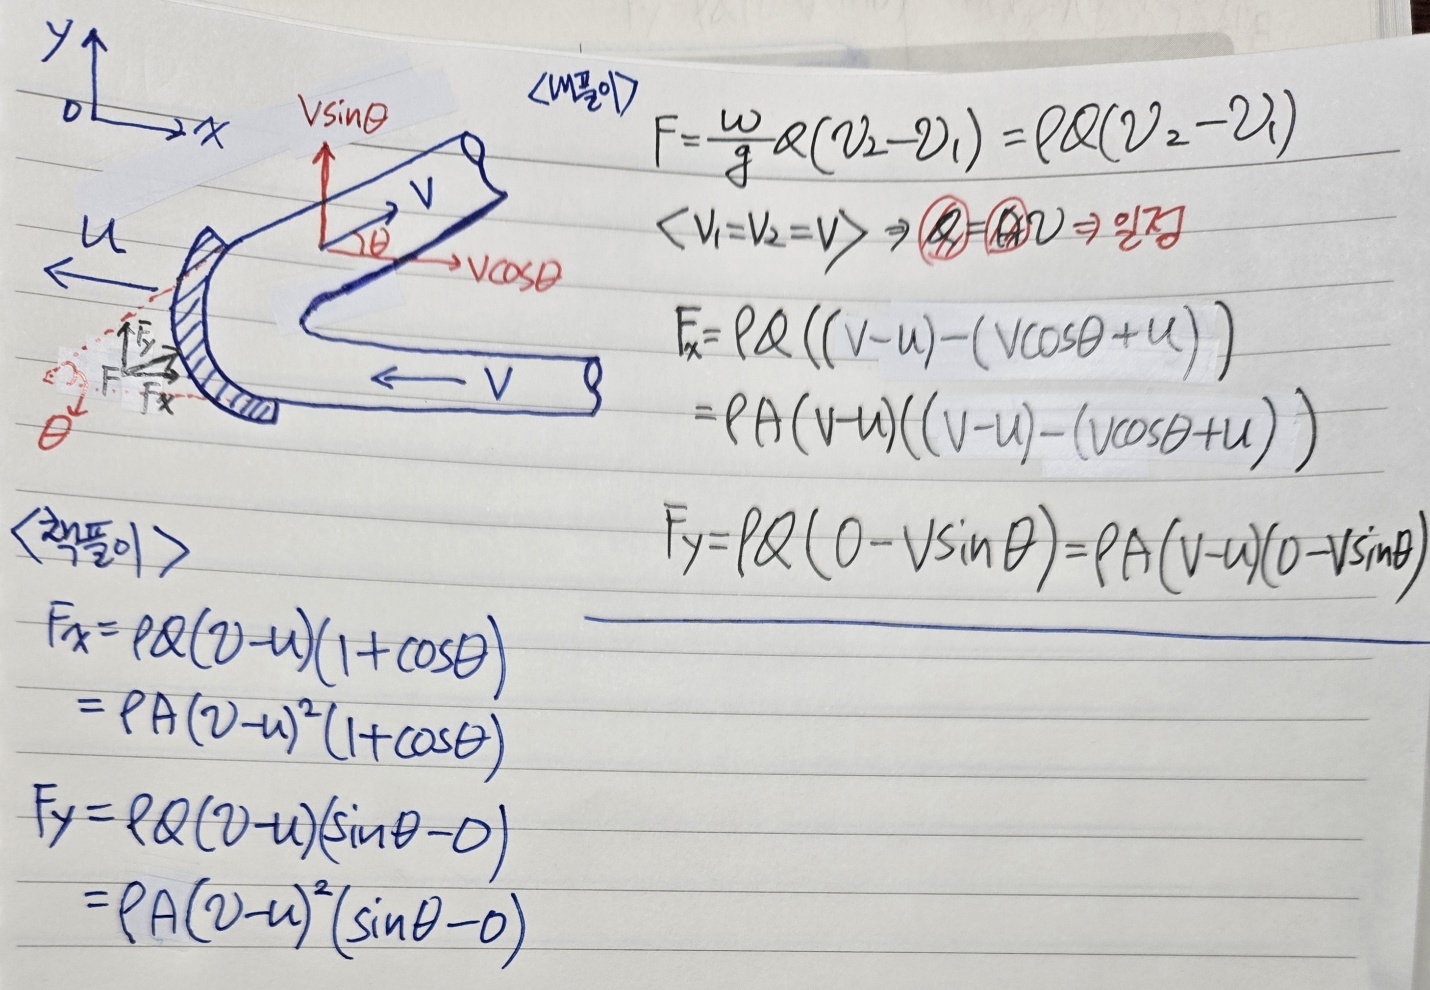 y
0
x
Vsinθ
V
u
θ
Vcosθ
Fy
F
Fx
V
θ
<내풀이>
F=w/g Q(V₂-V₁)=ρQ(V₂-V₁)
<V₁=V₂=V> ⇒ Q=AV ⇒ 일정
Fx=ρQ((V-u)-(Vcosθ+u))
=ρA(V-u)((V-u)-(Vcosθ+u))
Fy=ρQ(0-Vsinθ)=ρA(V-u)(0-Vsinθ)
<책풀이>
Fx=ρQ(V-u)(1+cosθ)
=ρA(V-u)²(1+cosθ)
Fy=ρQ(V-u)(sinθ-0)
=ρA(V-u)²(sinθ-0)